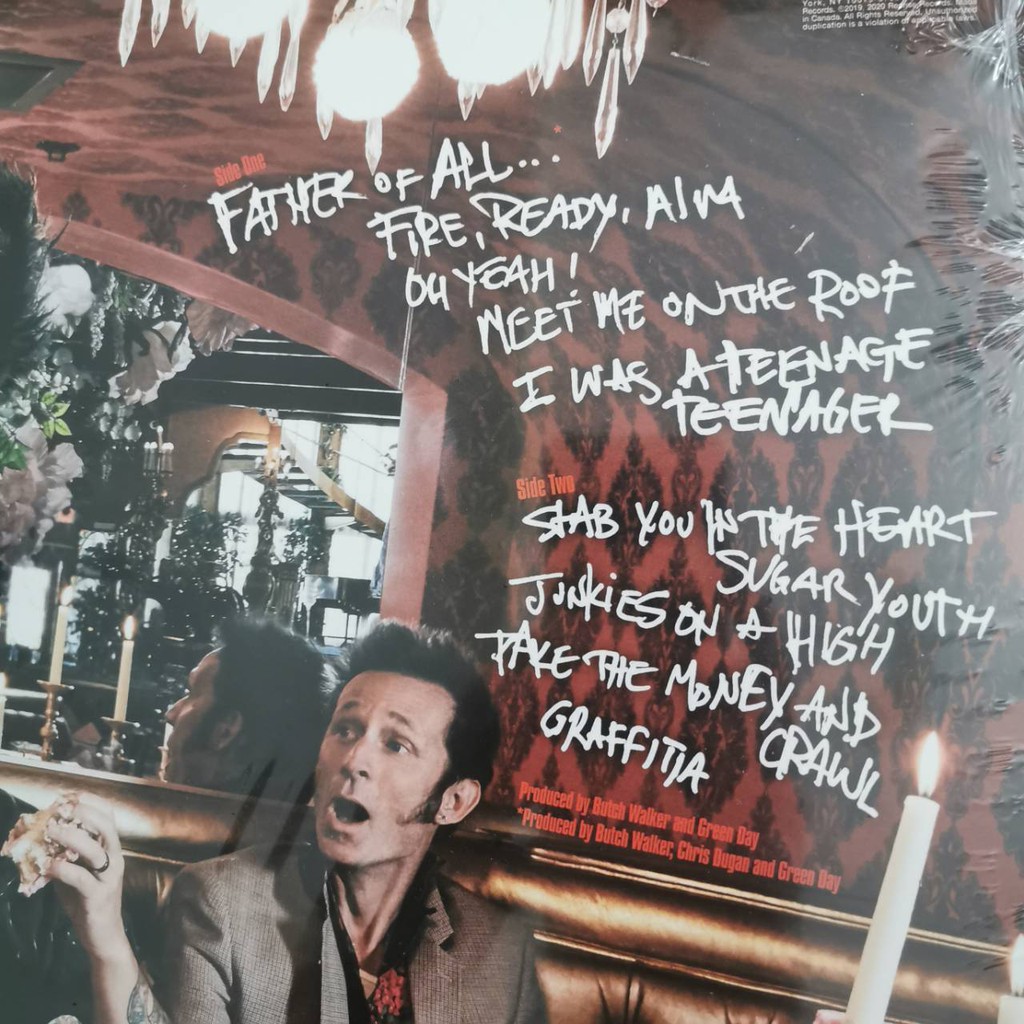 York, NY
Records. ©2019, 2020 Reprise Records.
in Canada. All Rights Reserved. Unauthorized
duplication is a violation of applicable laws.
Side One
FATHER OF ALL... *
FIRE, READY, AIM
OH YEAH!
MEET ME ON THE ROOF
I WAS A TEENAGE
TEENAGER
Side Two
STAB YOU IN THE HEART
SUGAR YOUTH
JUNKIES ON A HIGH
TAKE THE MONEY AND
CRAWL
GRAFFITIA
Produced by Butch Walker and Green Day
*Produced by Butch Walker, Chris Dugan and Green Day